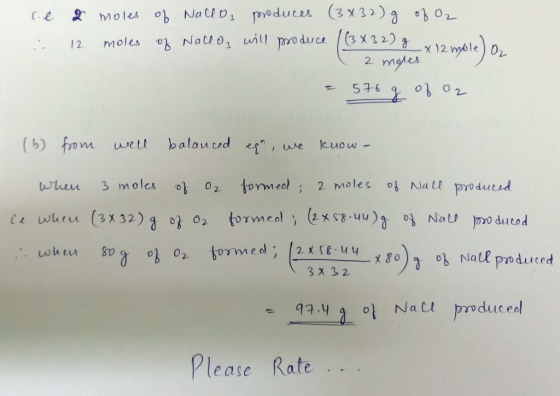 i.e 2 moles of NaClO3 produces (3×32) g of O2
∴ 12 moles of NaClO3 will produce ((3×32) g / 2 moles × 12 mole) O2
= 576 g of O2
(b) from well balanced eqn, we know -
When 3 moles of O2 formed ; 2 moles of NaCl produced
i.e when (3×32) g of O2 formed ; (2×58.44) g of NaCl produced
∴ when 80 g of O2 formed ; (2×58.44 / 3×32 ×80) g of NaCl produced
= 97.4 g of NaCl produced
Please Rate ...